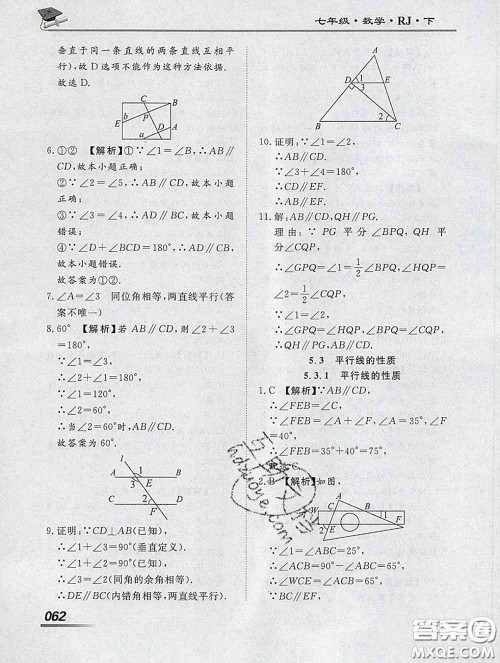 七年级·数学·RJ·下
垂直于同一条直线的两条直线互相平
行),故 D 选项不能作为这种方法依据.
故选 D.
C B
P
E b a A
D
6.①② 【解析】①∵∠1=∠B,∴AB∥
CD,故本小题正确;
②∵∠2=∠5,∴AB∥CD,故本小题
正确;
③∵∠3=∠4,∴AD∥BC,故本小题
错误;
④∵∠D+∠BCD=180°,∴AD∥BC,
故本小题错误.
故答案为①②.
7.∠A=∠3 同位角相等,两直线平行(答
案不唯一)
8.60° 【解析】若 AB∥CD,则∠2+∠3=
180°,
∵∠1=∠3,
∴∠2+∠1=180°,
∵∠1=120°,
∴∠2=60°,
∴当∠2=60°时,AB∥CD.
故答案为 60°.
A 1 B
3 E
C 2 D
F
9.证明:∵CD⊥AB(已知),
∴∠1+∠2=90°(垂直定义).
∵∠1+∠3=90°(已知),
∴∠3=∠2(同角的余角相等).
∴DE∥BC(内错角相等,两直线平行).
062
A
D 1 E
3
B 2 C
10.证明:∵∠1=∠2,
∴AB∥CD.
∵∠3+∠4=180°,
∴CD∥EF.
∴AB∥EF.
11.解:AB∥CD,QH∥PG.
理由:∵ PG 平分∠BPQ,QH 平
分∠CQP,
∴∠GPQ=∠1=1/2∠BPQ,∠HQP=
∠2=1/2∠CQP,
∵∠1=∠2,
∴∠GPQ=∠HQP,∠BPQ=∠CQP,
∴QH∥PG,AB∥CD.
5.3 平行线的性质
5.3.1 平行线的性质
1.C 【解析】∵AB∥CD,
∴∠FEB=∠C,
∵∠FEB=∠A+∠F,∠A=35°,∠F
=40°,
∴∠FEB=35°+40°=75°,
2.B 【解析】如图,
A
W C
1 F
B E
∵∠1=∠ABC=25°,
∴∠WCE=∠ABC=25°,
∵∠ACE=90°,
答案圈
MXQE.COM
hdzuoye.com